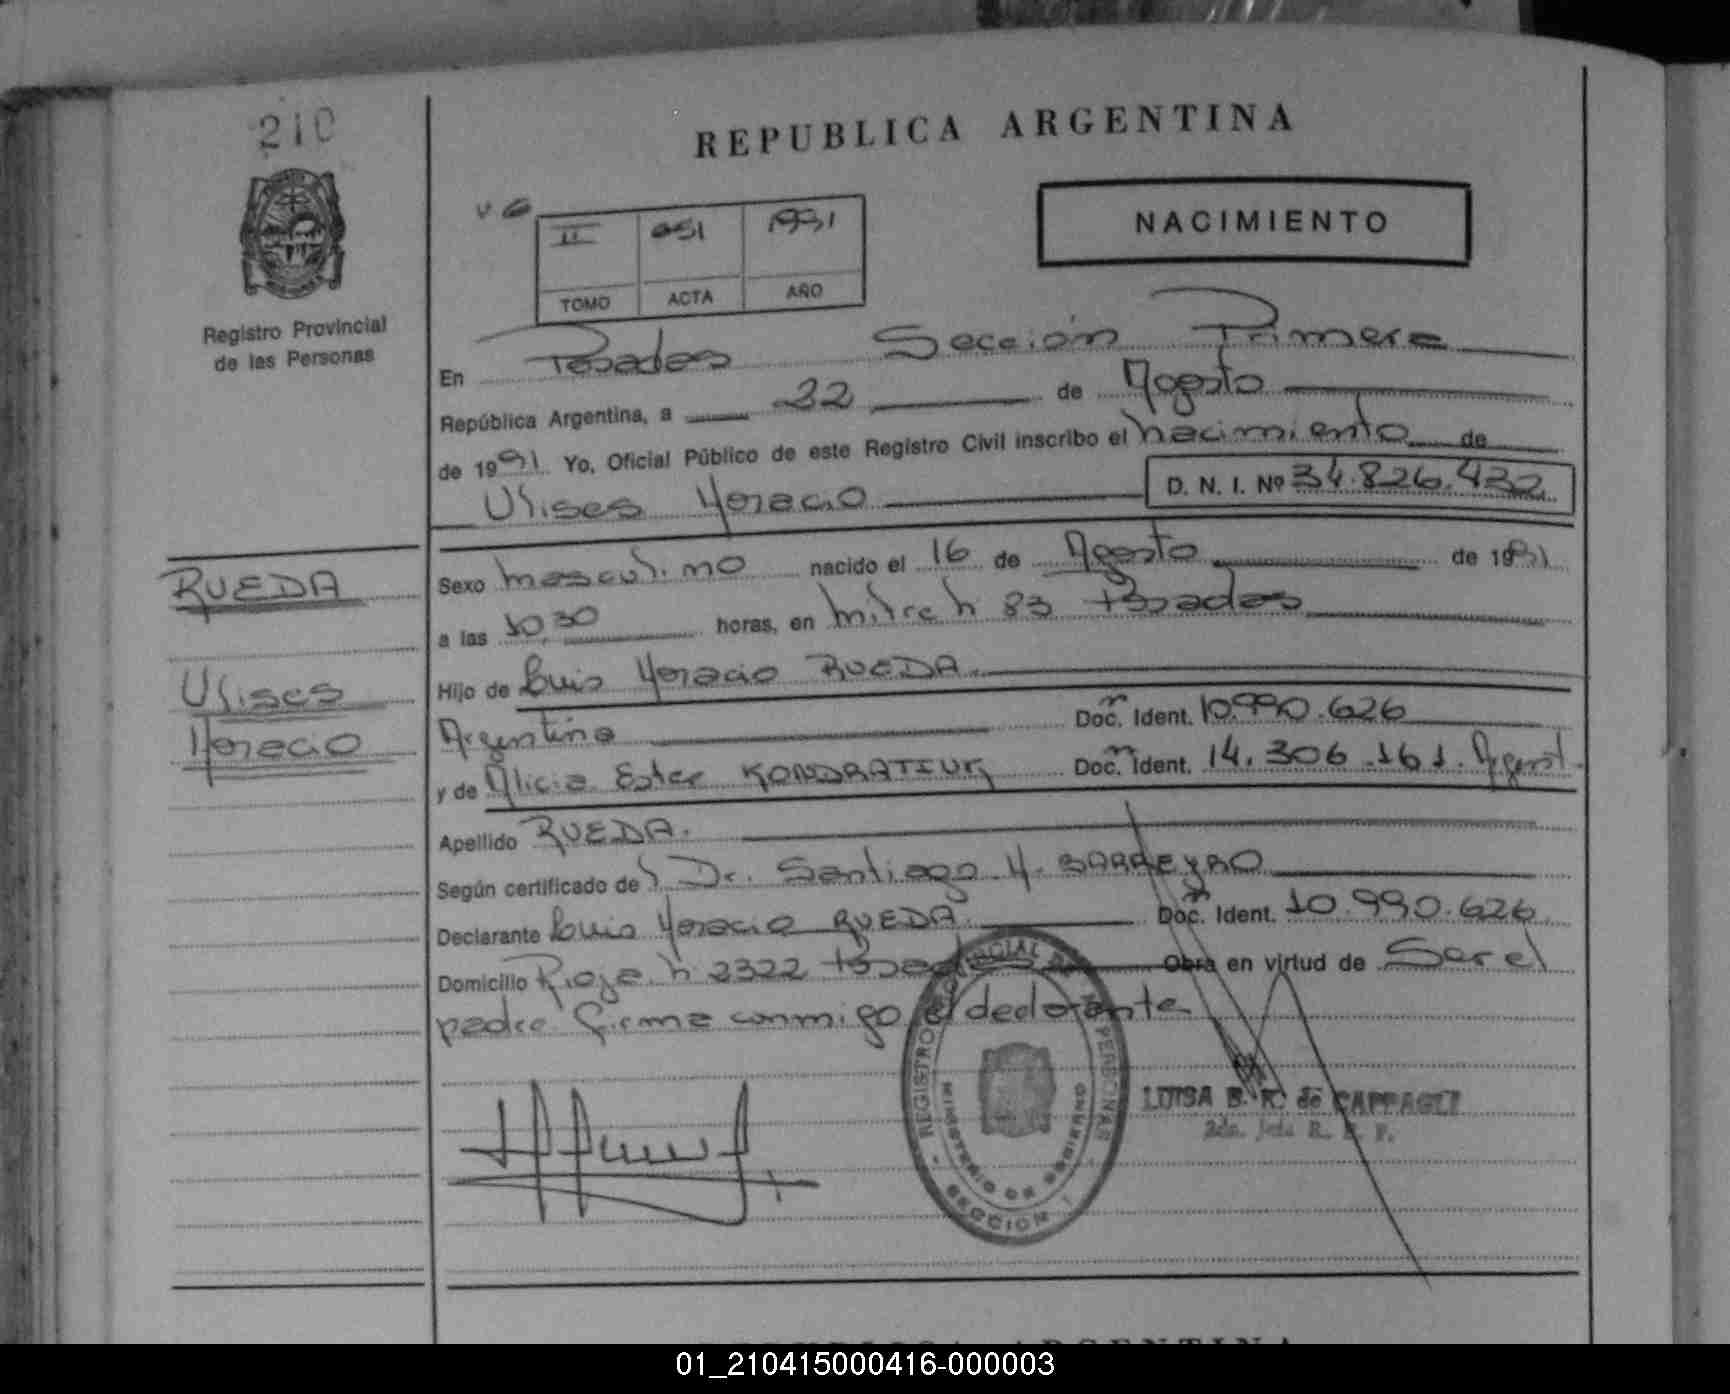 210
REPUBLICA ARGENTINA
NACIMIENTO
II 051 1991
TOMO ACTA AÑO
Registro Provincial
de las Personas
En Posadas Sección Primera
República Argentina, a 22 de Agosto
de 1991 Yo, Oficial Público de este Registro Civil inscribo el nacimiento de
Ulises Horacio D. N. I. Nº 34.826.432
RUEDA
Ulises
Horacio
Sexo masculino nacido el 16 de Agosto de 1991
a las 10,30 horas, en Mitre h 83 Posadas
Hijo de Luis Horacio RUEDA.
Argentino Doc. Ident. 10.990.626
y de Alicia Ester KONDRATIUK Doc. Ident. 14.306.161. Argent.
Apellido RUEDA.
Según certificado de Dr. Santiago H. BARREYRO
Declarante Luis Horacio RUEDA. Doc. Ident. 10.990.626
Domicilio Rioja h 2322 Posadas Obra en virtud de Ser el
padre firma conmigo el declarante
REGISTRO PROVINCIAL DE LAS PERSONAS
MINISTERIO DE GOBIERNO
SECCION 1
LUISA B. R. de CAPPAGLI
2da. Jefa R. P. P.
REPUBLICA ARGENTINA
01_210415000416-000003